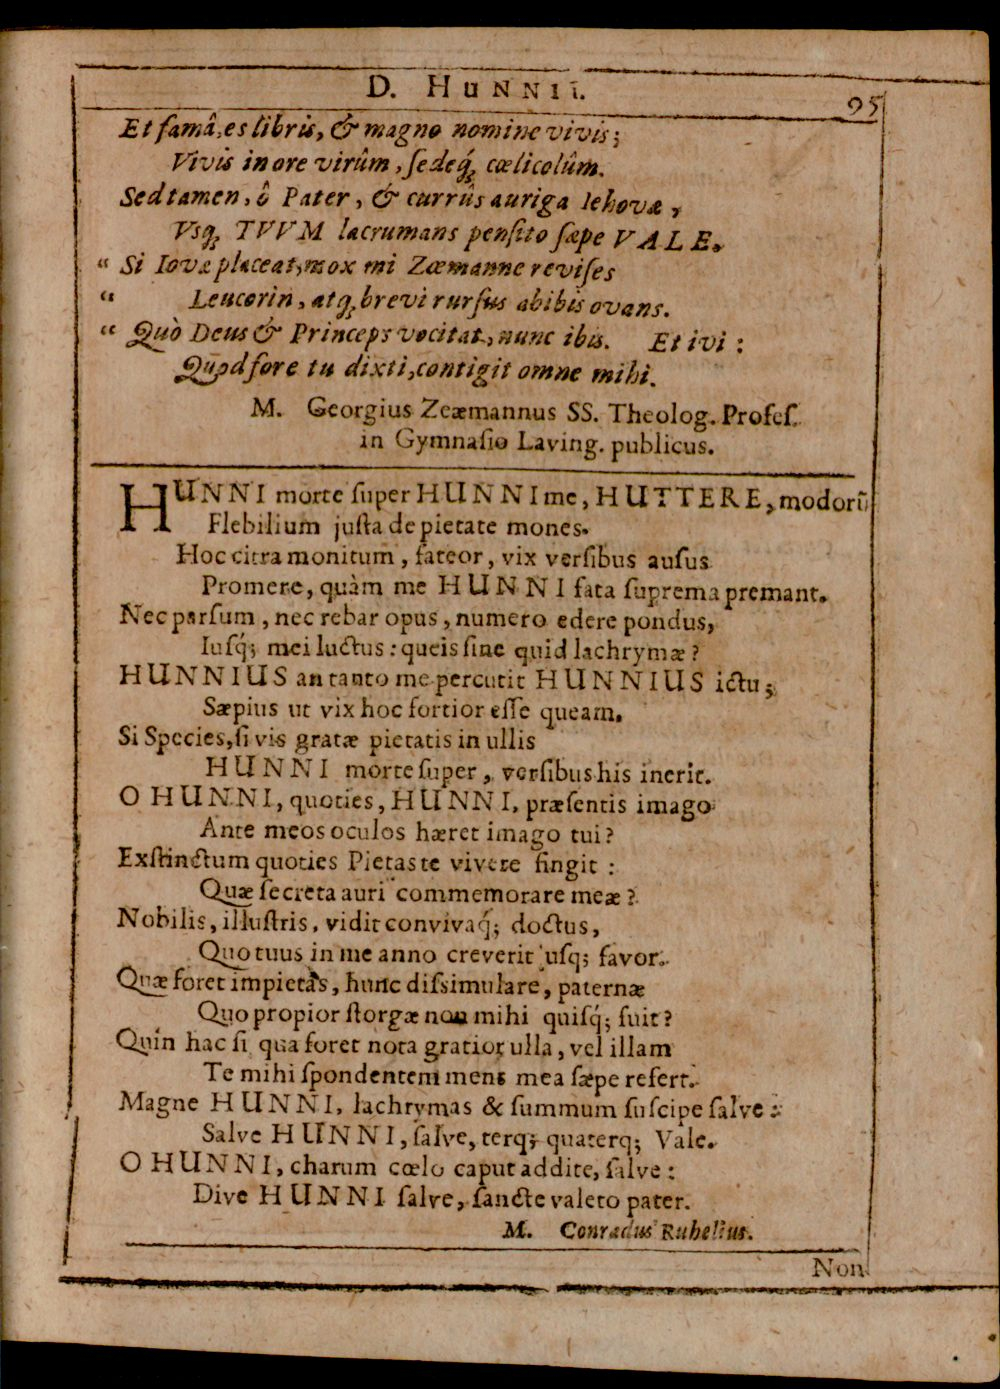 D. HUNNII.
95
Et famâ, es libris, & magno nomine vivis;
Vivis in ore virûm, ſedeq́ꝫ cœlicolûm.
Sed tamen, ô Pater, & currûs auriga Iehovæ,
Vsqꝫ TVVM lacrumans penſito ſæpe VALE.
“ Si Iovæ placeat, mox mi Zæmanne reviſes
“ Leucorin, atqꝫ brevi rurſus abibis ovans.
“ Quò Deus & Princeps vocitat, nunc ibis. Et ivi:
Quod fore tu dixti, contigit omne mihi.
M. Georgius Zeæmannus SS. Theolog. Profeſ.
in Gymnaſio Laving. publicus.
HUNNI morte ſuper HUNNI me, HUTTERE, modorũ
Flebilium juſta de pietate mones.
Hoc citra monitum, fateor, vix verſibus auſus
Promere, quàm me HUNNI fata ſuprema premant.
Nec parſum, nec rebar opus, numero edere pondus,
Iuſq́; mei luctus: queis ſine quid lachrymæ?
HUNNIUS an tanto me percutit HUNNIUS ictu;
Sæpius ut vix hoc fortior eſſe queam.
Si Species, ſi vis gratæ pietatis in ullis
HUNNI morte ſuper, verſibus his inerit.
O HUNNI, quoties, HUNNI, præſentis imago
Ante meos oculos hæret imago tui?
Exſtinctum quoties Pietas te vivere fingit:
Quæ ſecreta auri commemorare meæ?
Nobilis, illuſtris, vidit convivaq́; doctus,
Quo tuus in me anno creverit uſq; favor.
Quæ foret impietas, hunc diſsimulare, paternæ
Quo propior ſtorgæ non mihi quiſq́; fuit?
Quin hac ſi qua foret nota gratior ulla, vel illam
Te mihi ſpondentem mens mea ſæpe refert.
Magne HUNNI, lachrymas & ſummum ſuſcipe ſalve:
Salve HUNNI, ſalve, terq; quaterq; Vale.
O HUNNI, charum cœlo caput addite, ſalve:
Dive HUNNI ſalve, ſancte valeto pater.
M. Conradus Ruhelius.
Non